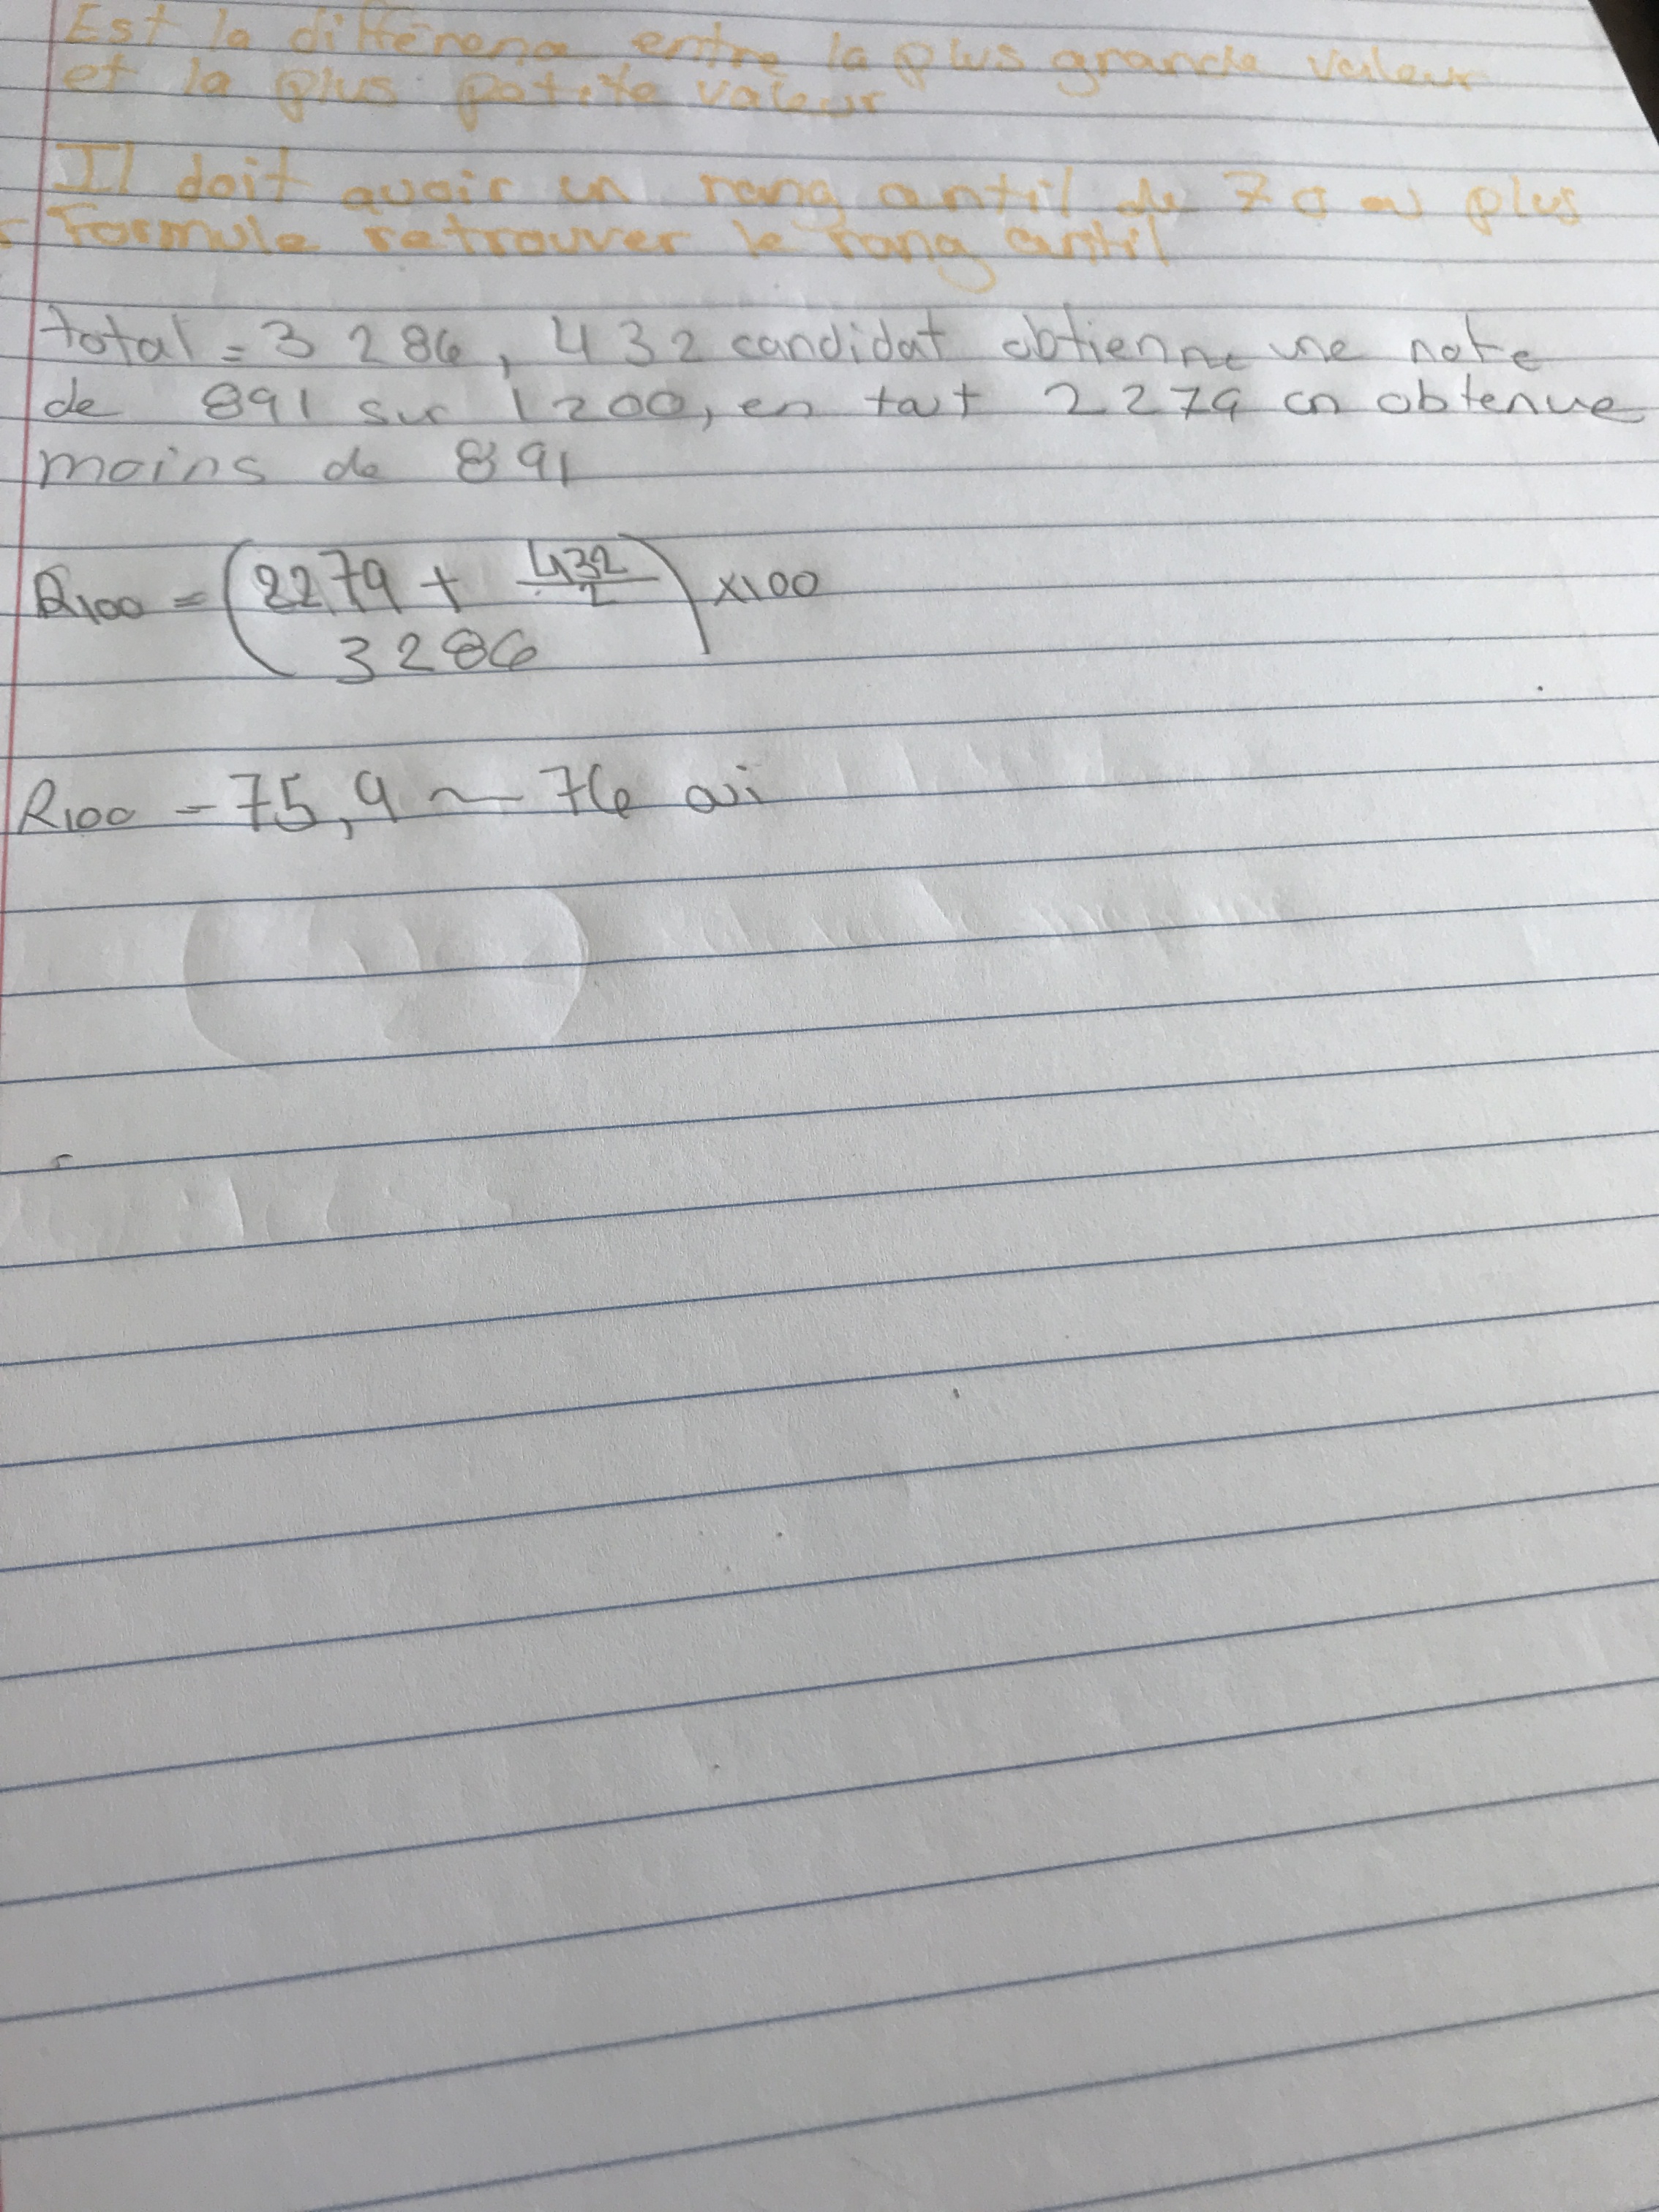 Est la différence entre la plus grande valeur
et la plus petite valeur
Il doit avoir un rang centil de 70 ou plus
Formule retrouver le rang centil
total = 3 286, 432 candidat obtienne une note
de 891 sur 1200, en tout 2279 on obtenue
moins de 891
R100 = (2279 + 432/2) x100
3286
R100 = 75,9 ~ 76 oui